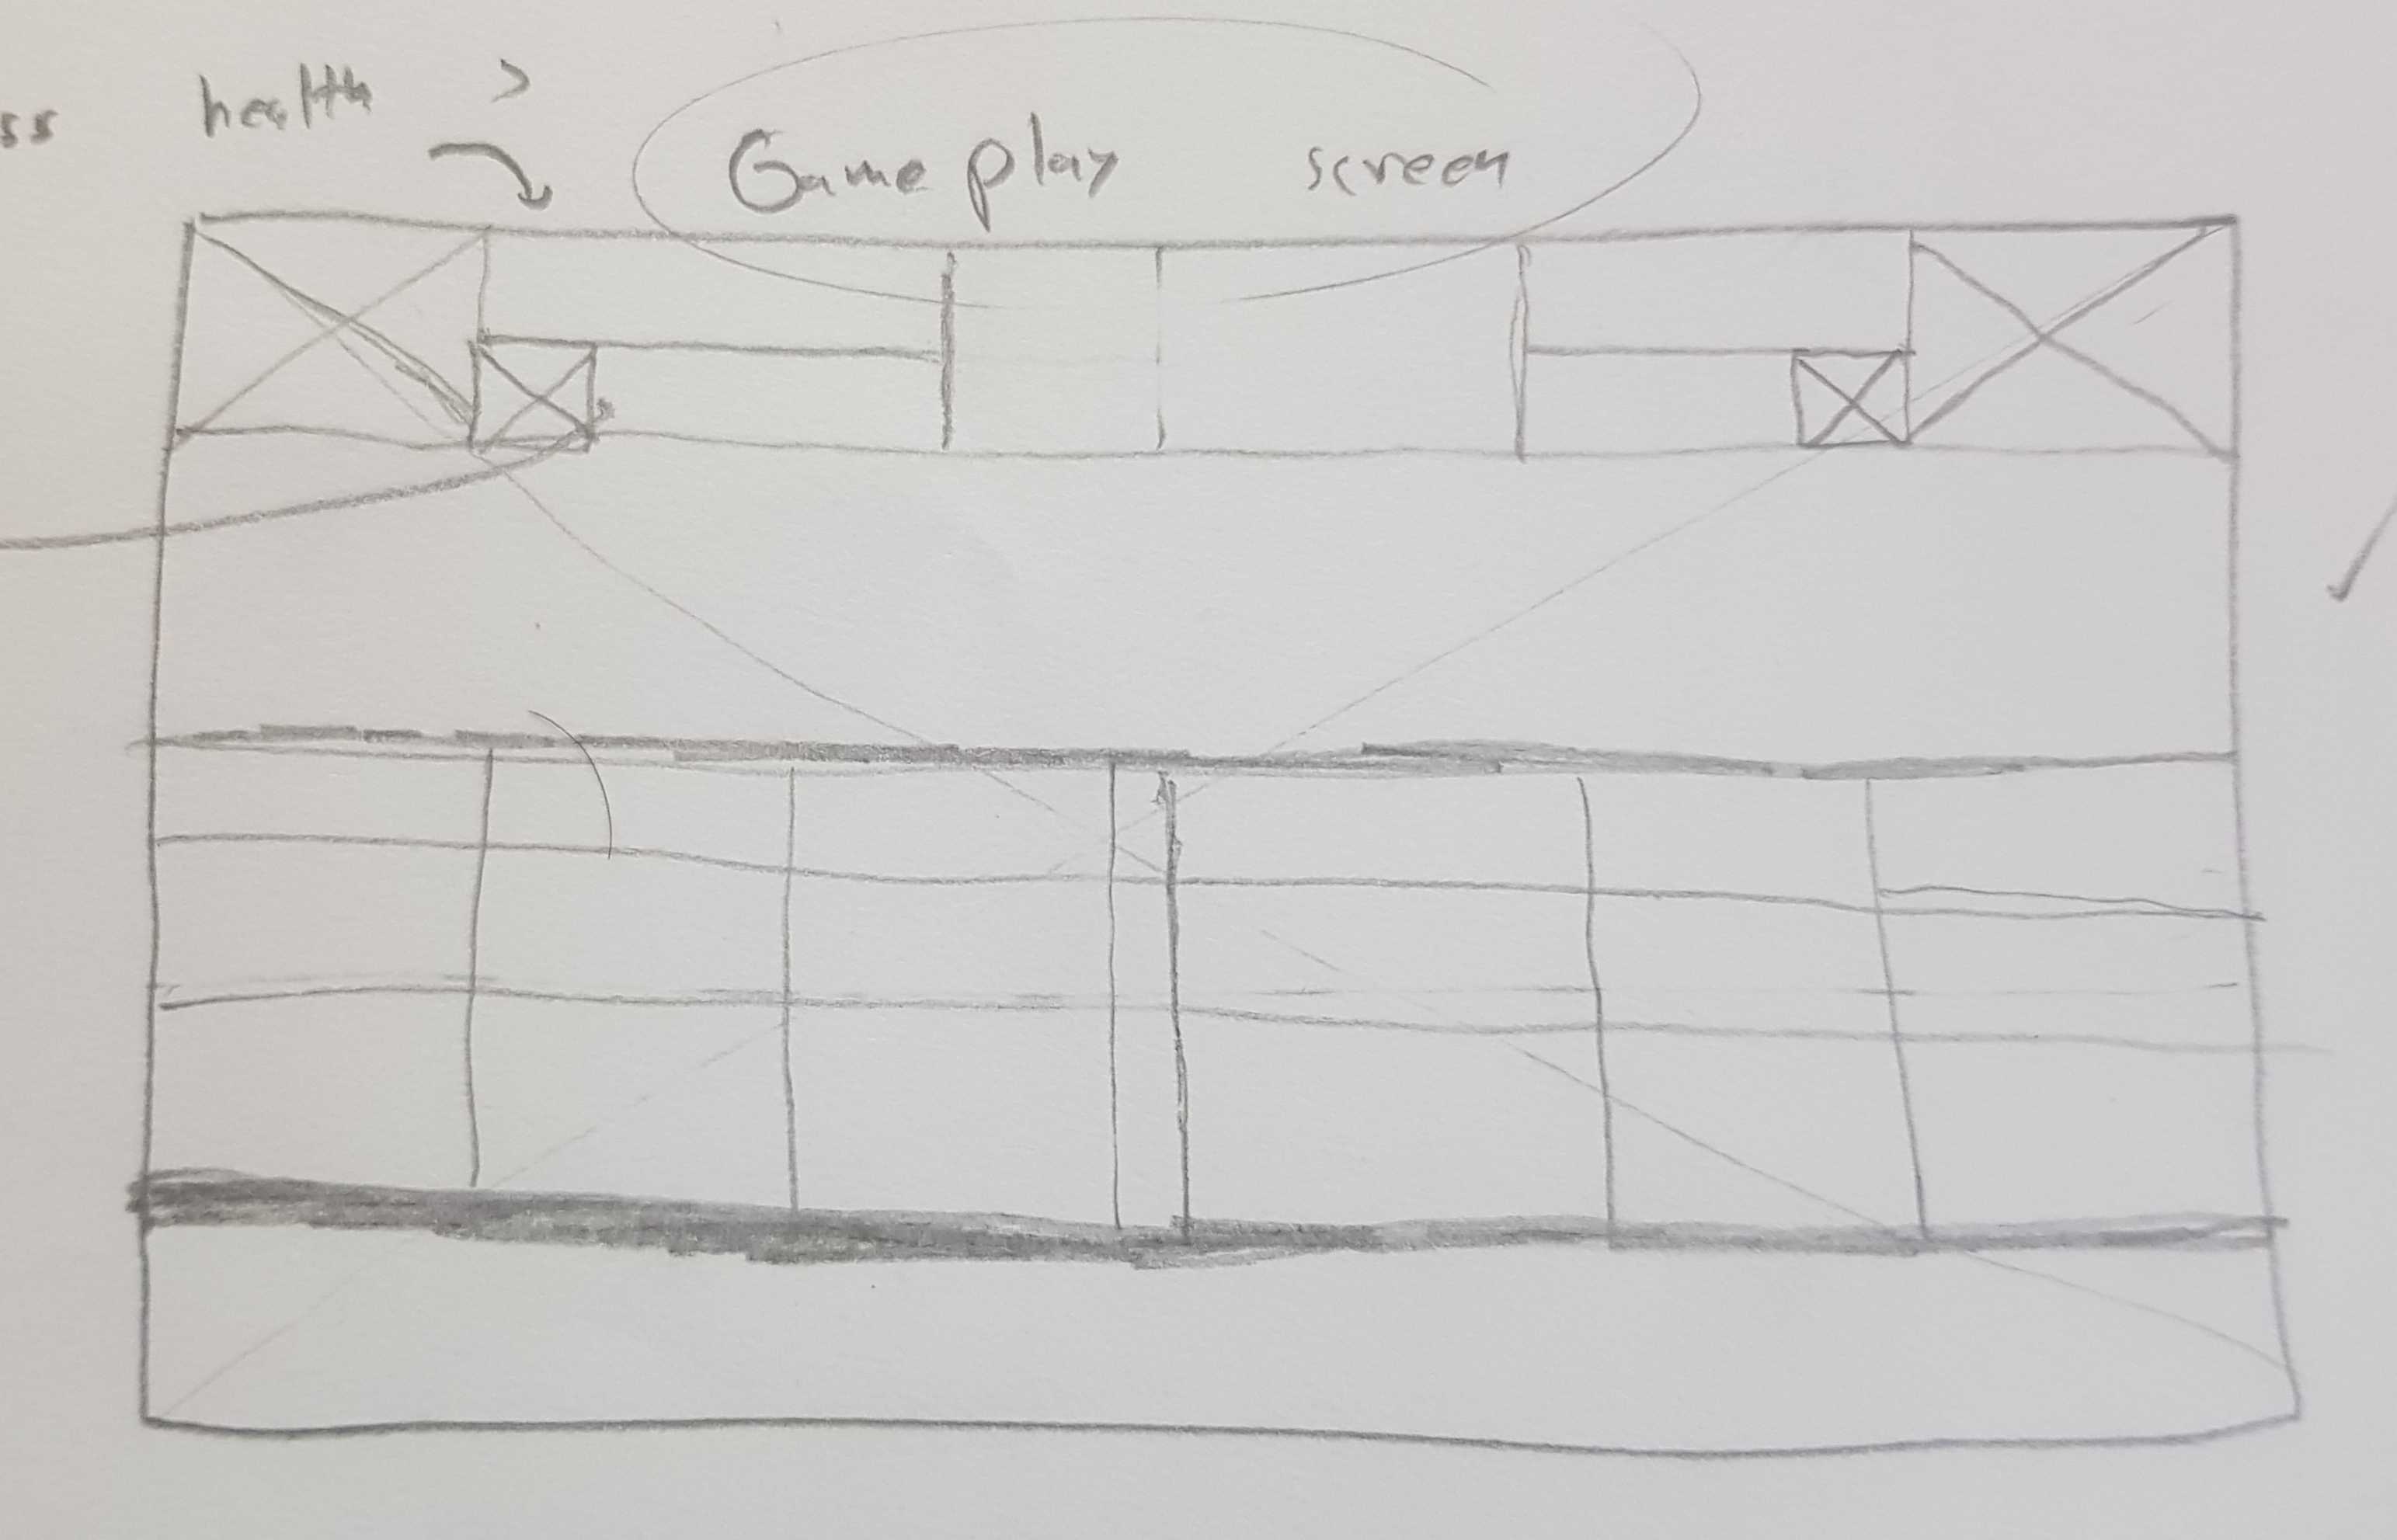 ss health >
Gameplay screen